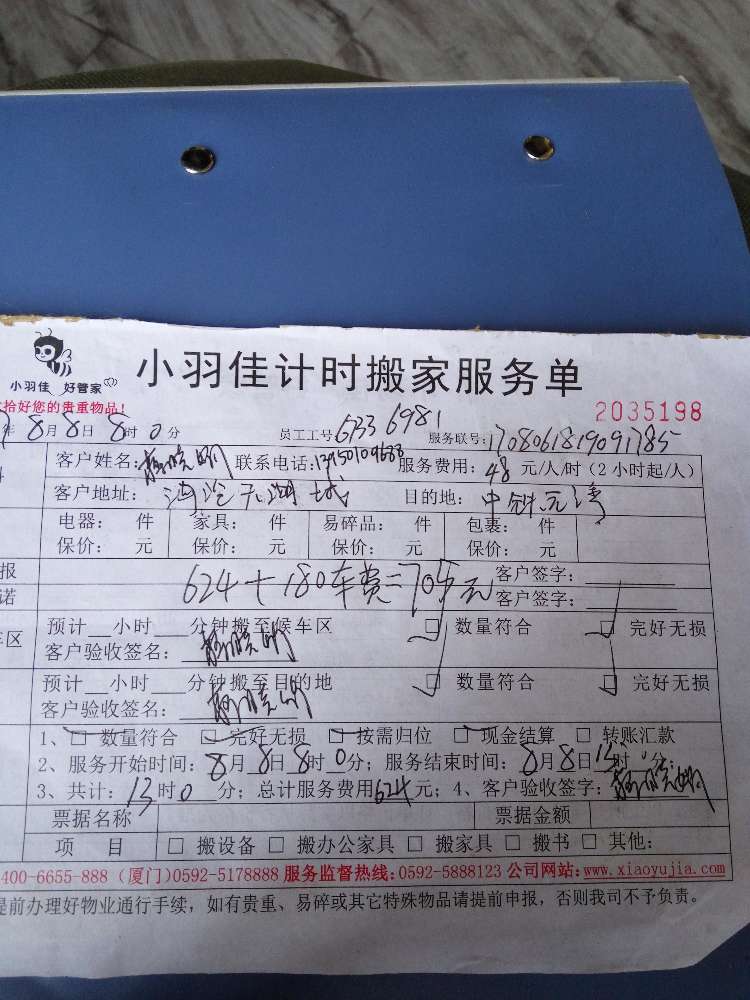 小羽佳 好管家
小羽佳计时搬家服务单
拾好您的贵重物品!
2035198
年8月8日8时0分 员工工号6733 6981 服务联号:1708061819091785
客户姓名: 联系电话:13950109688 服务费用:48元/人/时(2小时起/人)
客户地址:海沧天湖城 目的地:中铁元湾
电器: 件 家具: 件 易碎品: 件 包裹: 件
保价: 元 保价: 元 保价: 元 保价: 元
报 624+180车费=705元 客户签字:
诺 客户签字:
车区 预计__小时___分钟搬至候车区 □ 数量符合 □ 完好无损
客户验收签名:
预计__小时___分钟搬至目的地 □ 数量符合 □ 完好无损
客户验收签名:
1、□ 数量符合 □ 完好无损 □ 按需归位 □ 现金结算 □ 转账汇款
2、服务开始时间:8月8日8时0分;服务结束时间:8月8日 时 分;
3、共计:13时0分;总计服务费用624元;4、客户验收签字:
票据名称 票据金额
项 目 □ 搬设备 □ 搬办公家具 □ 搬家具 □ 搬书 □ 其他:
400-6655-888 (厦门)0592-5178888 服务监督热线:0592-5888123 公司网站:www.xiaoyujia.com
提前办理好物业通行手续,如有贵重、易碎或其它特殊物品请提前申报,否则我司不予负责。